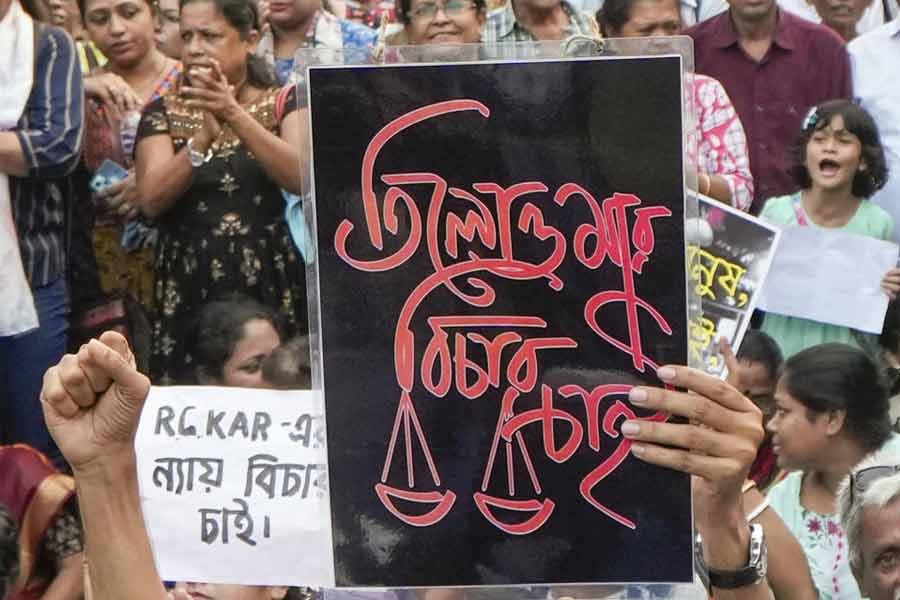 তিলোত্তমার
বিচার
চাই
R.G.KAR-এর
ন্যায় বিচার
চাই।